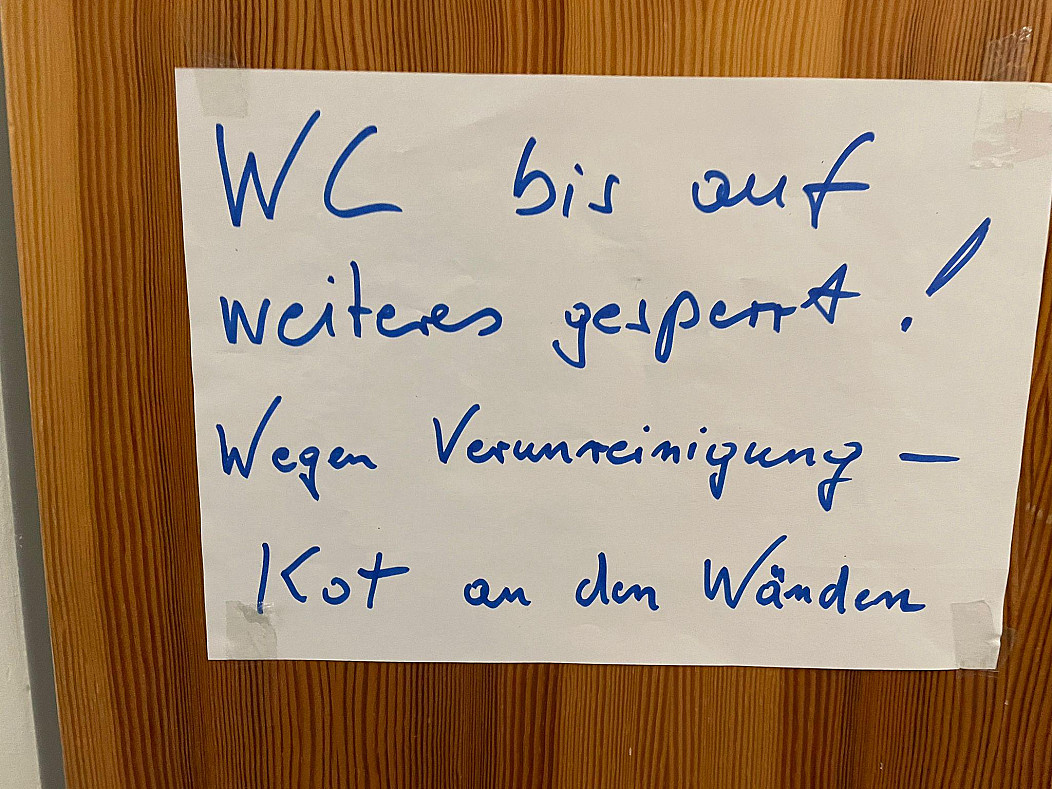 WC bis auf
weiteres gesperrt!
Wegen Verunreinigung –
Kot an den Wänden